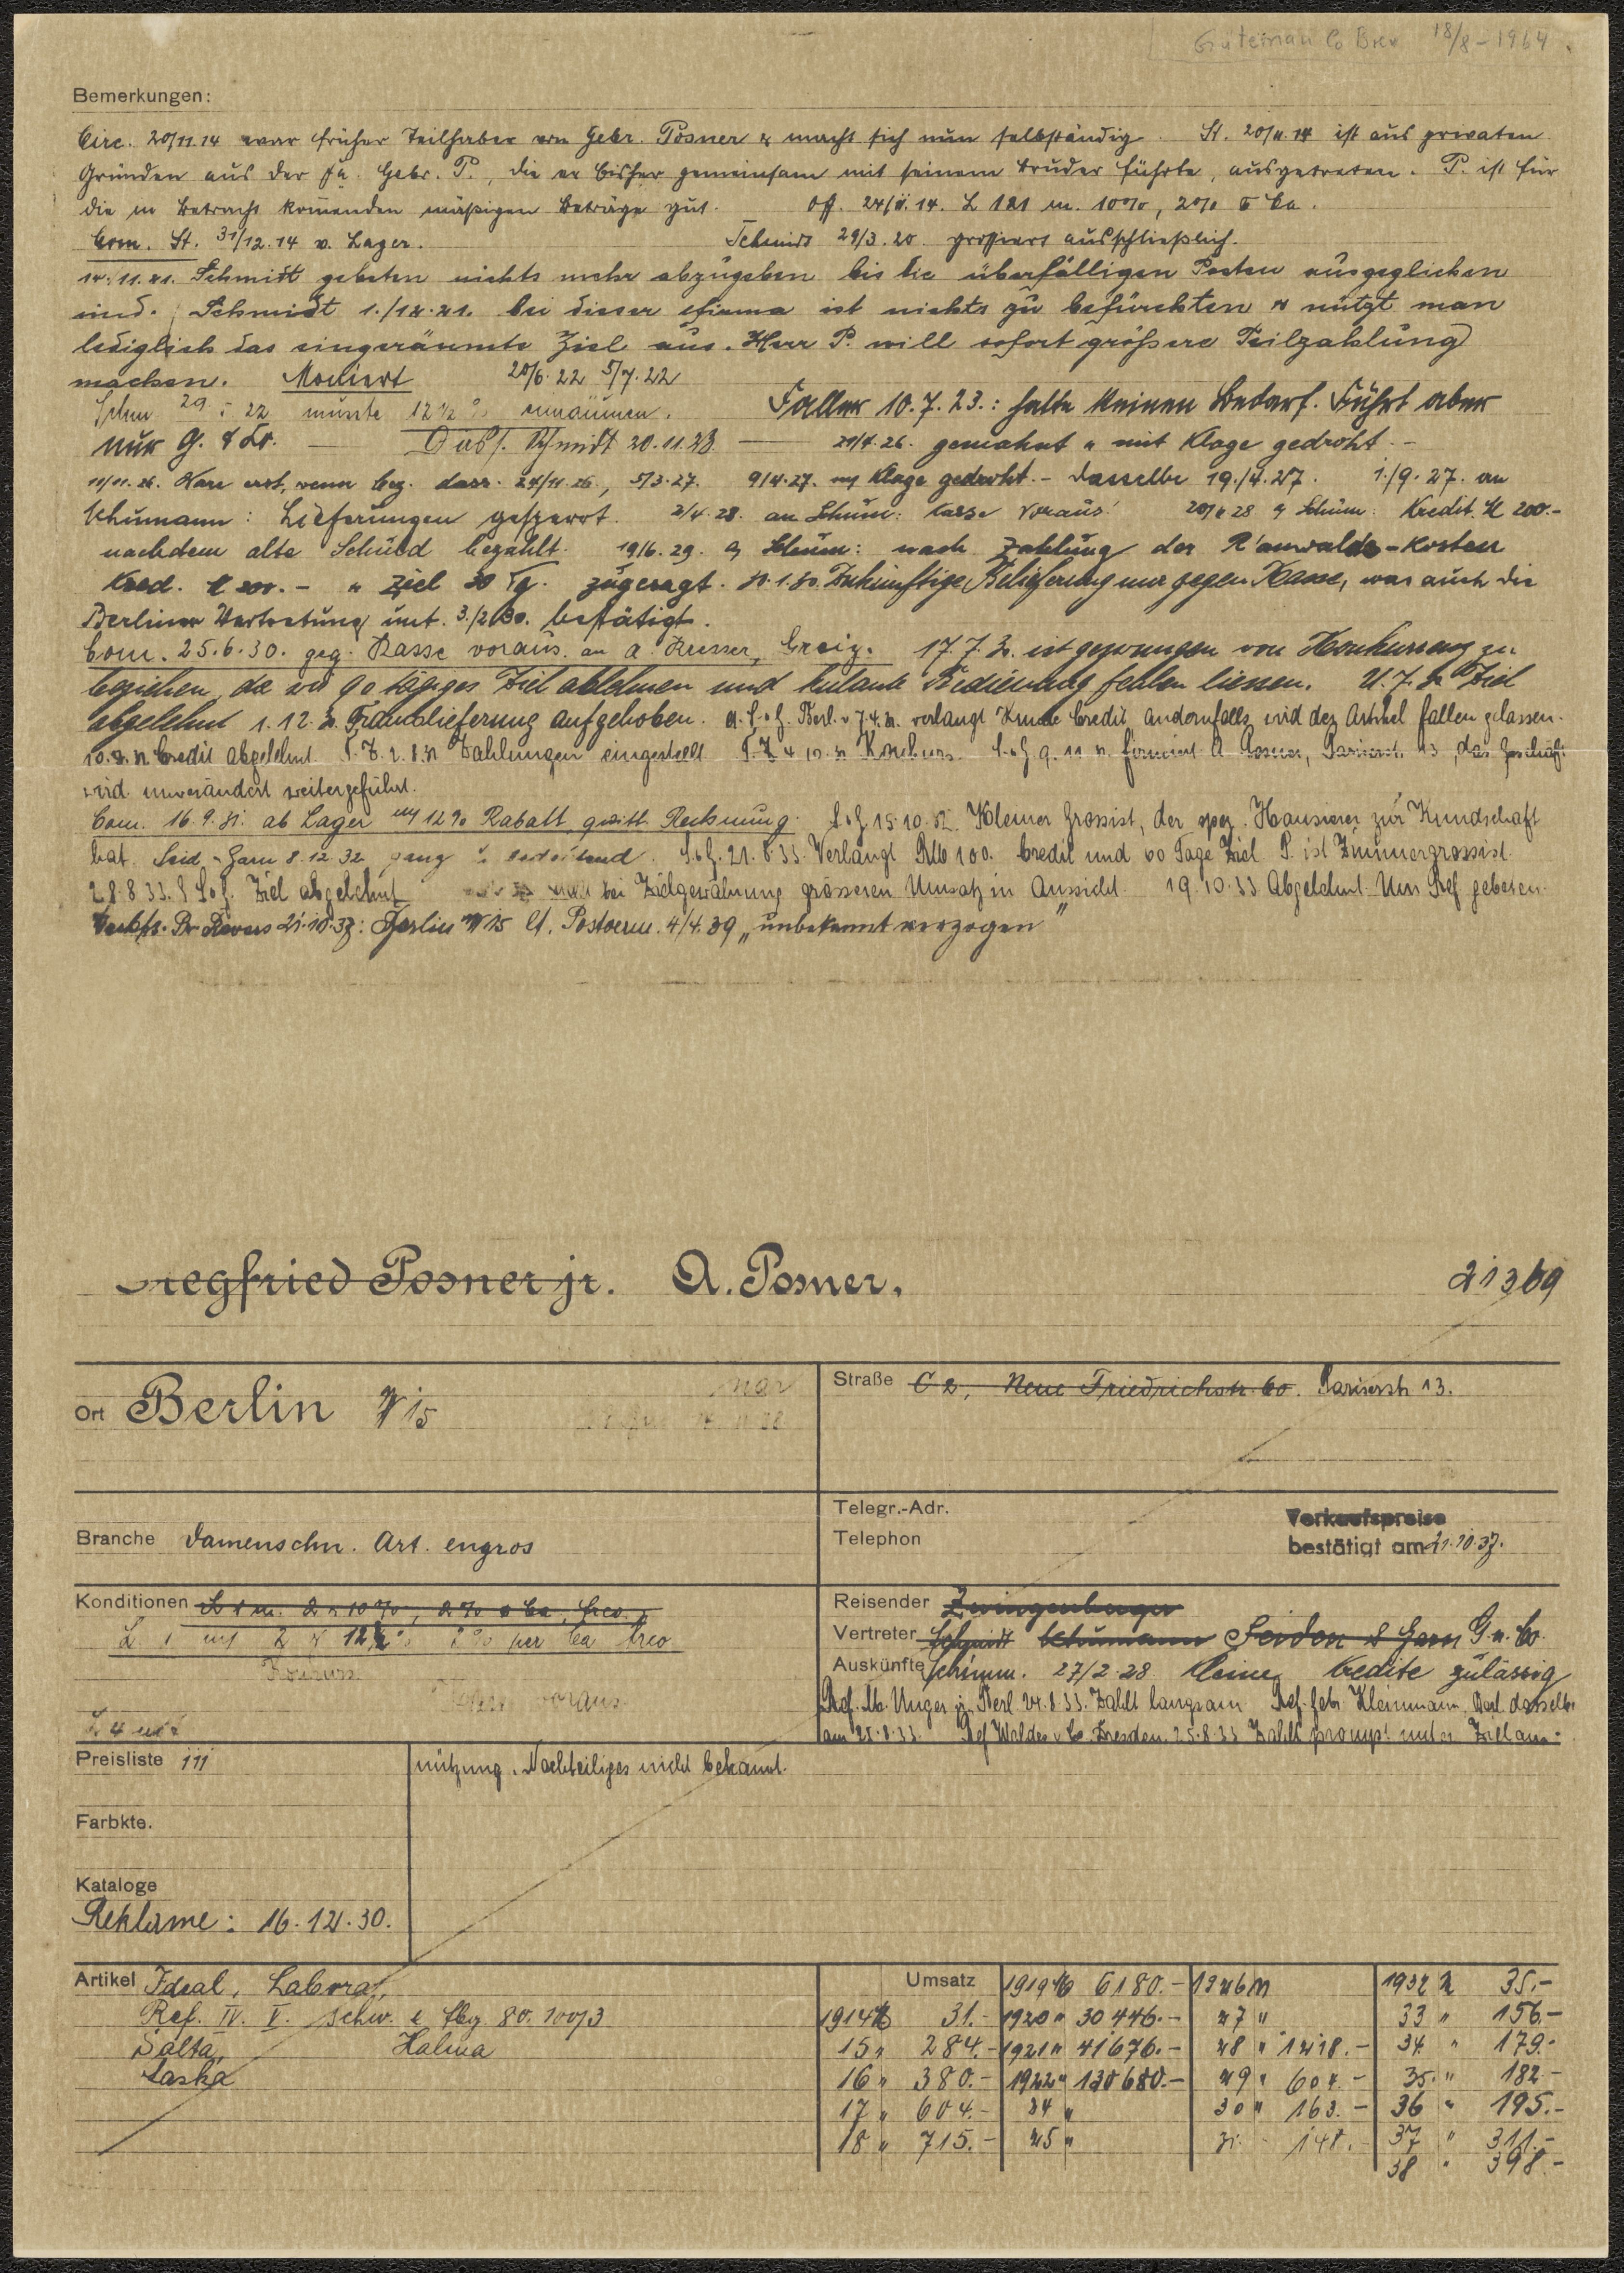 Gütermann Co Brev 18/8-1964
Bemerkungen:
Circ. 20/11.14 war früher Teilhaber von Gebr. Posner & macht sich nun selbständig. St. 20/11.14 ist aus privaten
Gründen aus der Fa. Gebr. P., die er bisher gemeinsam mit seinem Bruder führte, ausgetreten. P. ist für
die in Betracht kommenden mäßigen Beträge gut. Off. 24/11.14. L 121 m. 10%, 2% Ca.
Com. St. 31/12.14 v. Lager. Schmidt 29/3.20. grossiert ausschließlich.
14.11.21. Schmidt gebeten nichts mehr abzugeben bis die überfälligen Posten ausgeglichen
sind. Schmidt 1./12.21. bei dieser Firma ist nichts zu befürchten & nützt man
lediglich das eingeräumte Ziel aus. Herr P. will sofort größere Teilzahlung
machen. Moniert 20/6.22 5/7.22
29.5.22 musste 12½% einräumen. Faller 10.7.23.: hatte keinen Bedarf. Führt aber
nur G. & Co. — Schmidt 20.11.23 — 21/4.26. gemahnt u mit Klage gedroht. -
11/11.26. Ware erst, wenn bez. dass. 24/11.26, 5/3.27. 9/4.27. m Klage gedroht. - Dasselbe 19./4.27. 1./9.27. an
Schumann: Lieferungen gesperrt. 2/4.28. an Schum: Kasse voraus! Schum: Kredit M 200.-
nachdem alte Schuld bezahlt. 19/6.29. a Schum: nach Zahlung der R'anwalds-Kosten
Kred. M 200.- u Ziel 30 Tg. zugesagt. 30.1.30. Zukünftige Belieferung nur gegen Kasse, was auch die
Berliner Vertretung unt. 3./2.30. bestätigt.
Com. 25.6.30. geg. Kasse voraus. an A. Reisser, Greiz. 17.7.30. ist gezwungen von Konkurrenz zu
beziehen, da wir 90 tägiges Ziel ablehnen und kulante Bedienung fehlen liessen. Ziel
abgelehnt 1.12.30. Francolieferung aufgehoben. Berl. v 7.4.31. verlangt Kunde Credit, andernfalls wird der Artikel fallen gelassen.
Credit abgelehnt. Zahlungen eingestellt Konkurs. firmiert A. Posner, Pariserstr. 13, das Geschäft
wird unverändert weitergeführt.
Com. 16.9.31. ab Lager m 12% Rabatt, quitt. Rechnung. S&G 15.10.32. Kleiner Grossist, der spez. Hausierer zur Kundschaft
hat. Seid & Garn 8.12.32 ganz S&G. 21.8.33. Verlangt RM 100. Credit und 60 Tage Ziel. P. ist Zimmergrossist.
28.8.33. S&G. Ziel abgelehnt bei Zielgewährung grösseren Umsatz in Aussicht. 19.10.33 Abgelehnt. Um Ref gebeten.
Verkfs. Pr. Revers 21.10.37: Berlin W 15 lt. Postverm. 4/4.39 „unbekannt verzogen"
Siegfried Posner jr. A. Posner, 21369
Ort Berlin W 15
Straße C 2, Neue Friedrichstr. 60. Pariserstr. 13.
Branche Damenschn. Art. engros
Telegr.-Adr.
Telephon
Verkaufspreise
bestätigt am 21.10.37.
Konditionen
L 1 m 12½% 2% per Ca frco
Konkurs
Kasse voraus
Reisender Zwingenberger
Vertreter Schmidt Schumann Seiden & Garn G. u. Co.
Auskünfte Schum. 27/2.28 kleine Kredite zulässig
Ref. M. Unger jr. Berl 24.8.33. Zahlt langsam Ref. Gebr. Kleinmann, Berl. dasselbe
am 25.8.33. Ref Walden & Co. Dresden. 25.8.33 Zahlt prompt unter Zielaus-
nützung. Nachteiliges nicht bekannt.
Preisliste 111
Farbkte.
Kataloge
Reklame: 16.12.30.
Artikel Ideal, Labora,
Ref. IV. V. schw. & fbg 80. 100/3
Salta, Halma
Laska
Umsatz
1914 M 31.-
15 " 284.-
16 " 380.-
17 " 604.-
18 " 715.-
1919 M 6180.-
1920 " 30446.-
1921 " 41676.-
1922 " 130680.-
24 "
25 "
1926 M
27 "
28 " 1218.-
29 " 604.-
30 " 163.-
31. 148.-
1932 M 35.-
33 " 156.-
34 " 179.-
35. " 182.-
36 " 195.-
37 " 311.-
38 " 398.-